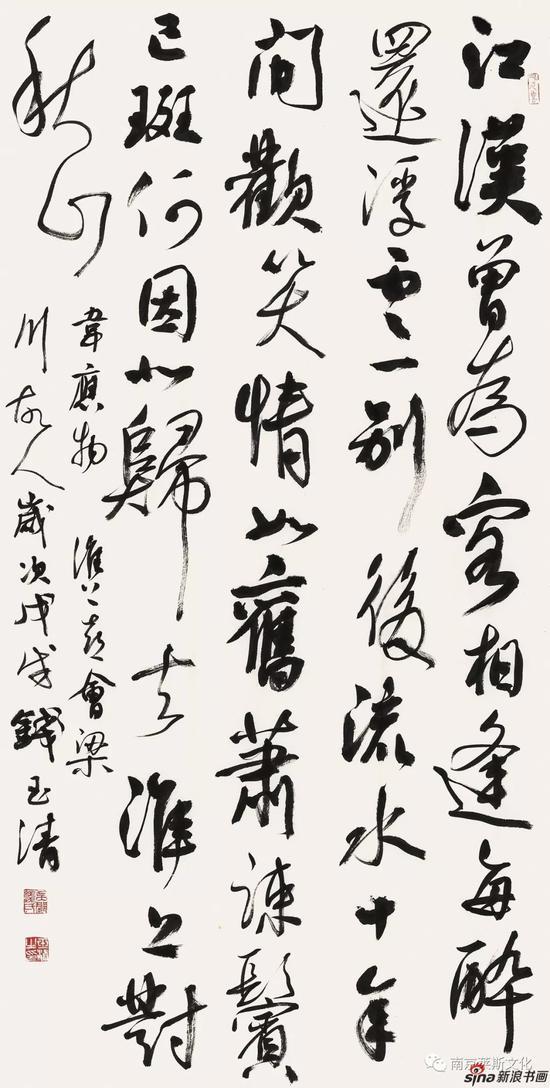 江漢曾為客相逢每醉
還浮雲一別後流水十年
間歡笑情如舊蕭疎鬢
已斑何因北歸去淮上對
秋山
韋應物 淮上喜會梁
川故人歲次戊戌錢玉清
南京莱斯文化
sina新浪书画